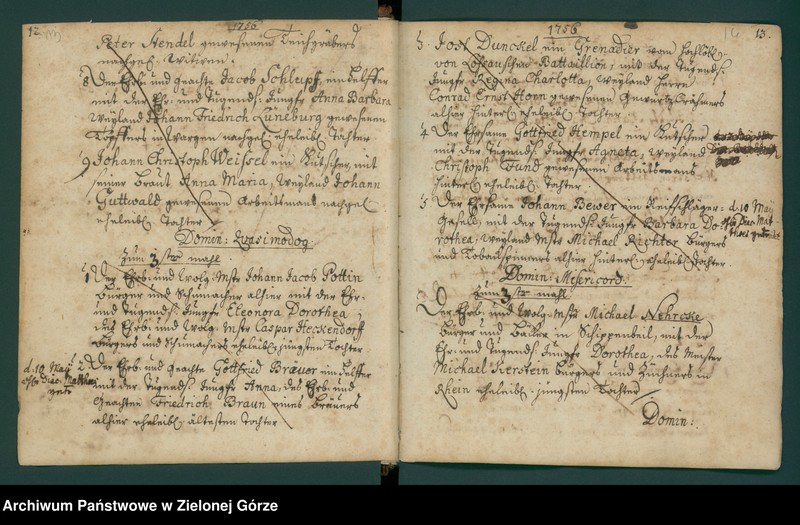 12.
1756
Peter Hendel gewesenen Teichgräbers
nachgel. Witwen.
8 Der Ehr. und geachte Jacob Schlupff, ein Helffer
mit der Ehr. und Tugends. Jungfr. Anna Barbara
Weyland Johann Friedrich Lüneburg gewesenen
Töpffers in Wargen nachgel. eheleibl. Tochter
9 Johann Christoph Weissel ein Kutscher mit
seiner Braut Anna Maria, Weyland Johann
Guttwald gewesenen Arbeitsmann nachgel.
eheleibl. Tochter
Domin: Quasimodog.
Zum 3 ten mahl.
1 Der Ehrb. und Wolg. Mstr Johann Jacob Pottin
Bürger und Schumacher alhier mit der Ehr-
und Tugends. Jungfr. Eleonora Dorothea,
des Ehrb. und Wolg. Mstr Caspar Heckendorff
Bürgers und Schumachers eheleibl. jüngsten Tochter
2 Der Ehrb. und geachte Gottfried Brauer ein Helffer
mit der Tugends. Jungfr. Anna, des Ehrb. und
Geachten Friedrich Braun eines Brauers
alhier eheleibl. ältesten Tochter
d. 10 Maij
1756
13.
3. Jost Dunckel ein Grenadier vom Hochlöbl.
von Battaillion, mit der Tugends.
Jungfr. Regina Charlotta, Weyland Herrn
Conrad Ernst Horn gewesenen Gewürtz Krähmers
alhier hinterl. eheleibl. Tochter
4 Der Ehrsame Gottfried Hempel ein Kutscher
mit der Tugends. Jungfr. Agneta, Weyland
Christoph Fund gewesenen Arbeitsmans
hinterl. eheleibl. Tochter.
5 Der Ehrsame Johann Bewer ein Reifschläger-
Gesell, mit der Tugends. Jungfr. Barbara Do-
rothea, Weyland Mstr Michael Richter Bürgers
und Tobackspinners alhier hinterl. eheleibl. Tochter
d. 10 Maij
Domin: Misericord:
Zum 3 ten mahl.
Der Ehrb. und Wolg. Mstr Michael Nehrcke
Bürger und Becker in Schippenbeil, mit der
Ehr. und Tugends. Jungfr. Dorothea, des Meister
Michael Kerstein Bürgers und Züchners in
Rhein eheleibl. jüngsten Tochter
Domin:
Archiwum Państwowe w Zielonej Górze